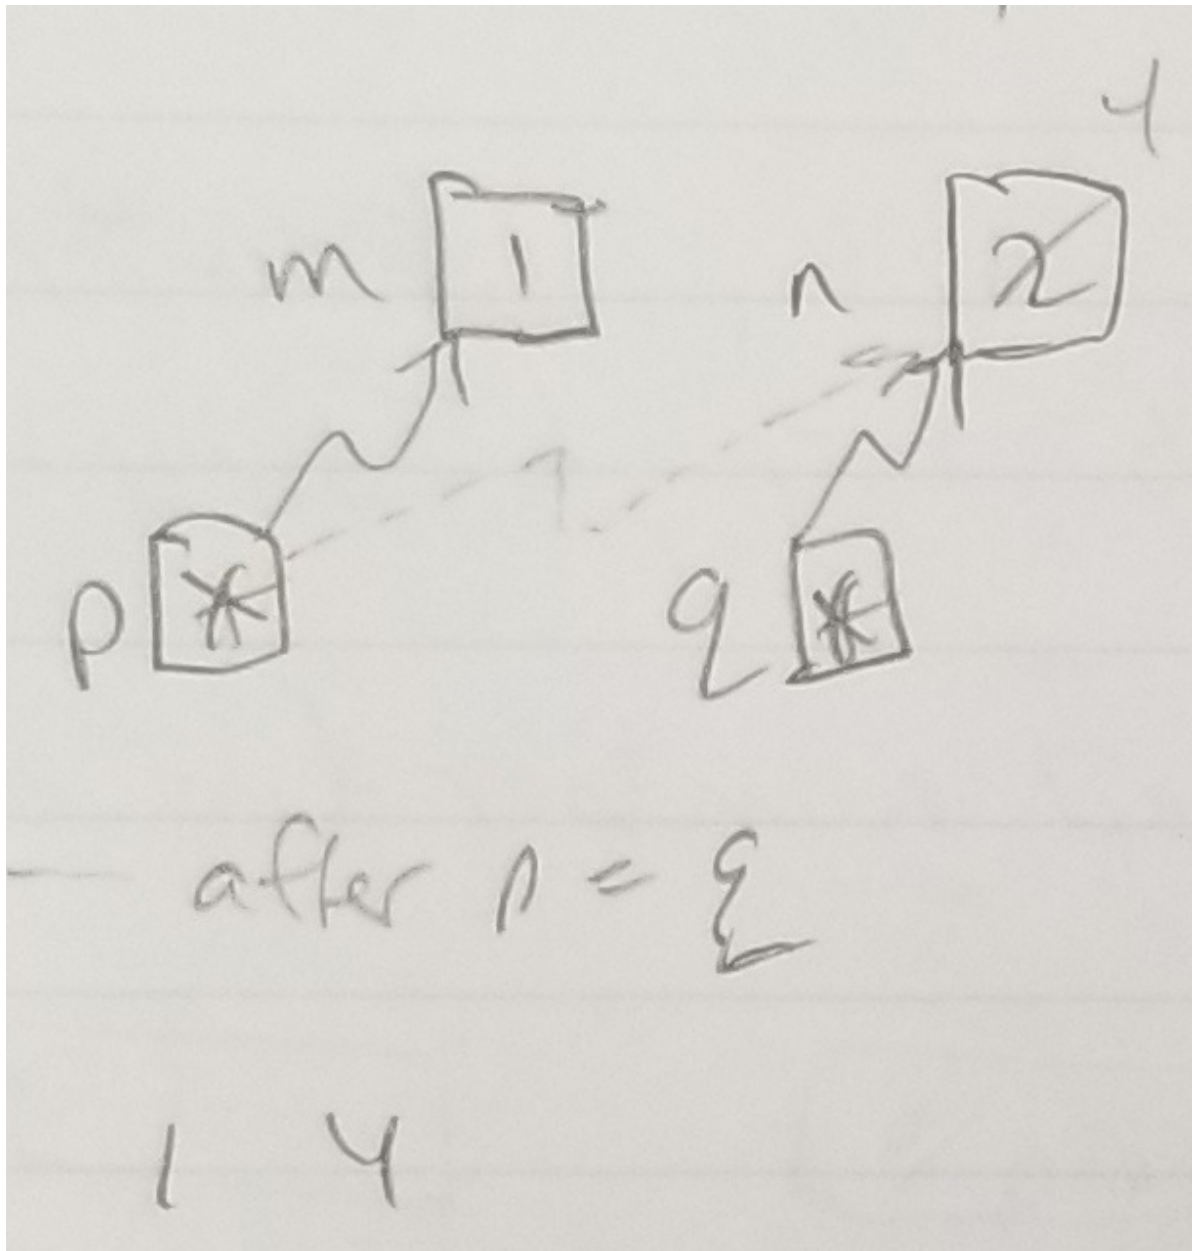 4
m 1 n 2
p * q *
after p = q
1 4